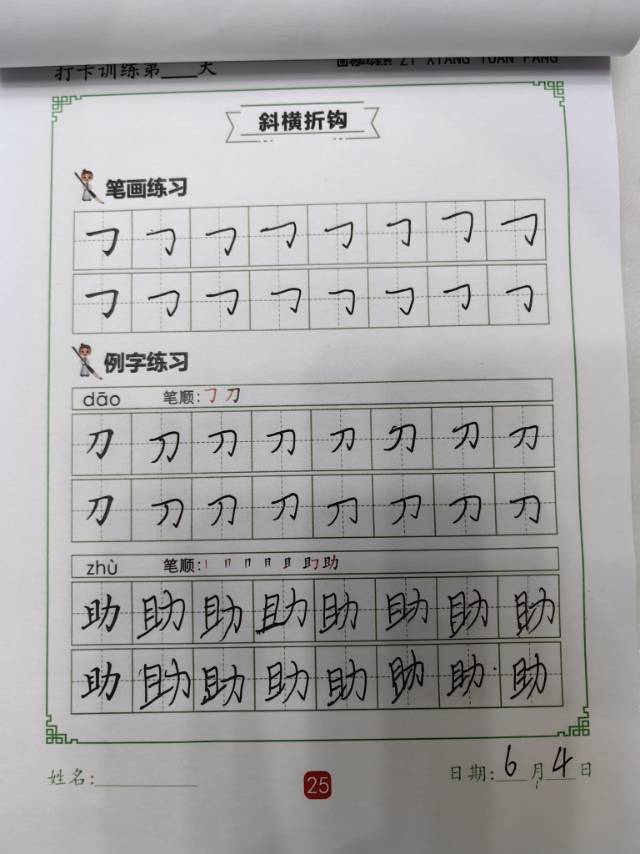 打卡训练第___天
ZI XIANG YUAN FANG
斜横折钩
笔画练习
㇆ ㇆ ㇆ ㇆ ㇆ ㇆ ㇆ ㇆
㇆ ㇆ ㇆ ㇆ ㇆ ㇆ ㇆ ㇆
例字练习
dāo 笔顺: ㇆ 刀
刀 刀 刀 刀 刀 刀 刀 刀
刀 刀 刀 刀 刀 刀 刀 刀
zhù 笔顺: 丨 𠃍 月 月 且 助 助
助 助 助 助 助 助 助 助
助 助 助 助 助 助 助 助
姓名:__________ 25 日期: 6 月 4 日